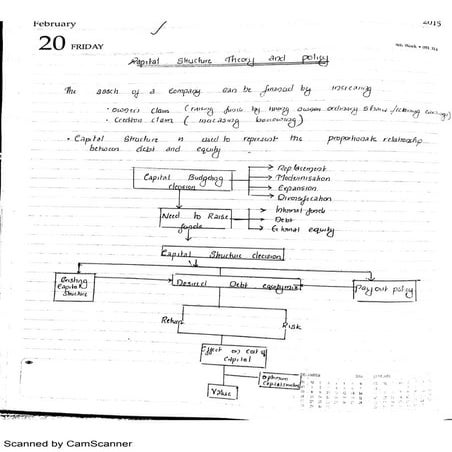 February
2015
20 FRIDAY
Capital Structure Theory and policy
The assets of a Company can be financed by increasing
• owners claim (raising funds by issuing ordinary shares/retaining earnings)
• Creditors claim (increasing borrowing)
• Capital Structure is used to represent the proportionate relationship
between debt and equity
Capital Budgeting
decision
Replacement
Modernisation
Expansion
Diversification
Need to Raise
funds
Internal funds
Debt
External equity
Capital Structure decision
Existing
Capital
Structure
Desired Debt equity mix
Pay out policy
Return
Risk
Effect on cost of
Capital
Optimum
Capital
Value
Scanned by CamScanner